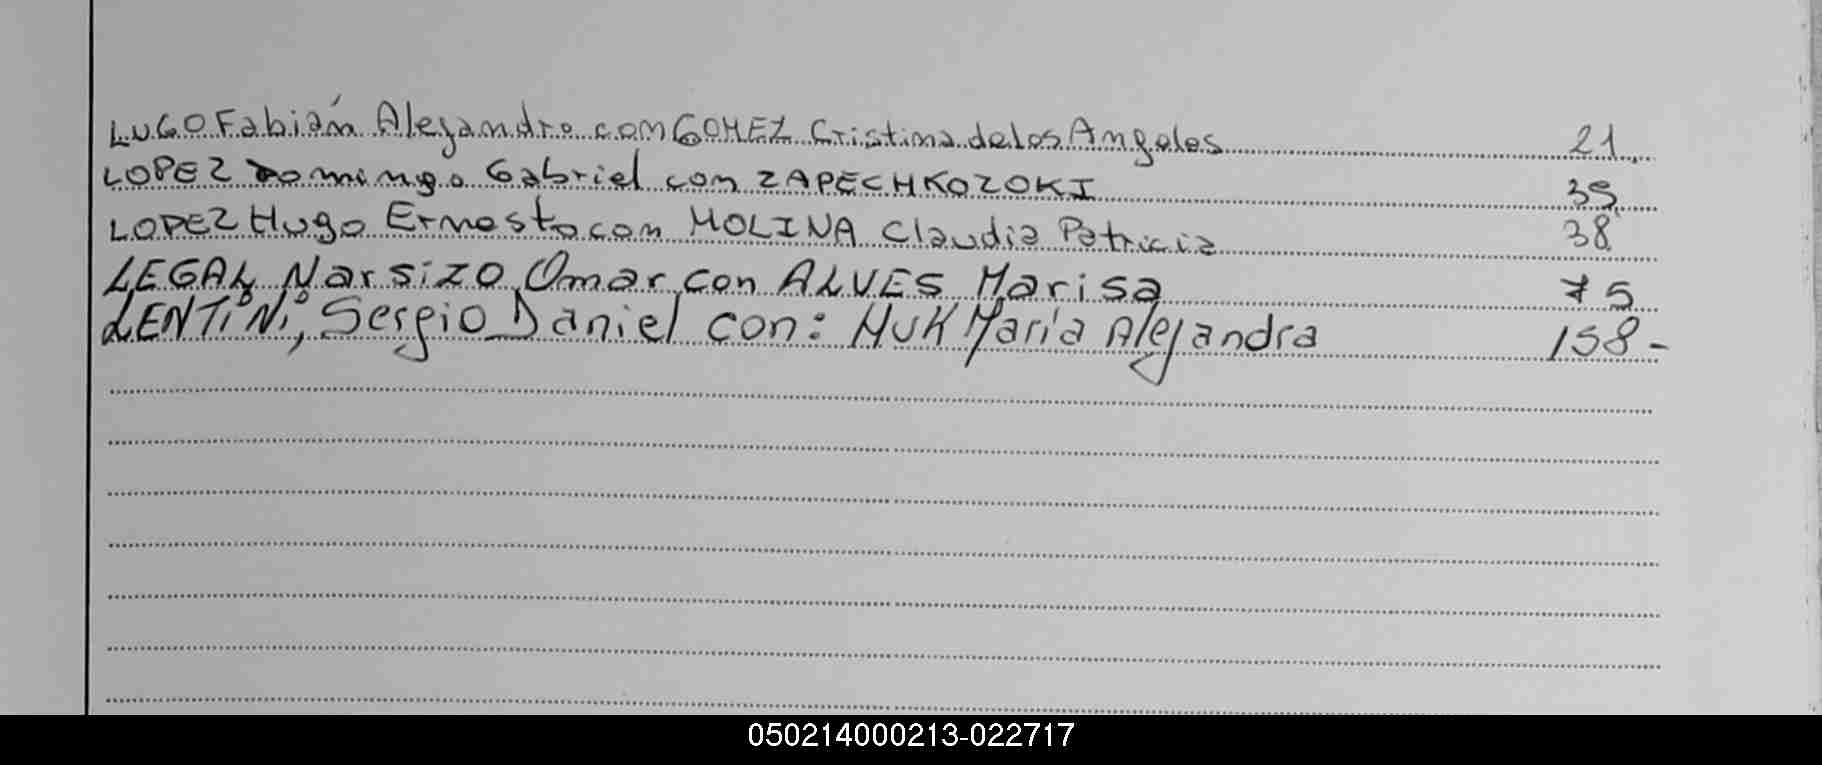 LUGO Fabián Alejandro con GOMEZ Cristina de los Angeles 21
LOPEZ Domingo Gabriel con ZAPECHKOZOKI 35
LOPEZ Hugo Ernesto con MOLINA Claudia Patricia 38
LEGAL Narsizo Omar con ALVES Marisa 75
LENTINI, Sergio Daniel con: HUK María Alejandra 158-
050214000213-022717